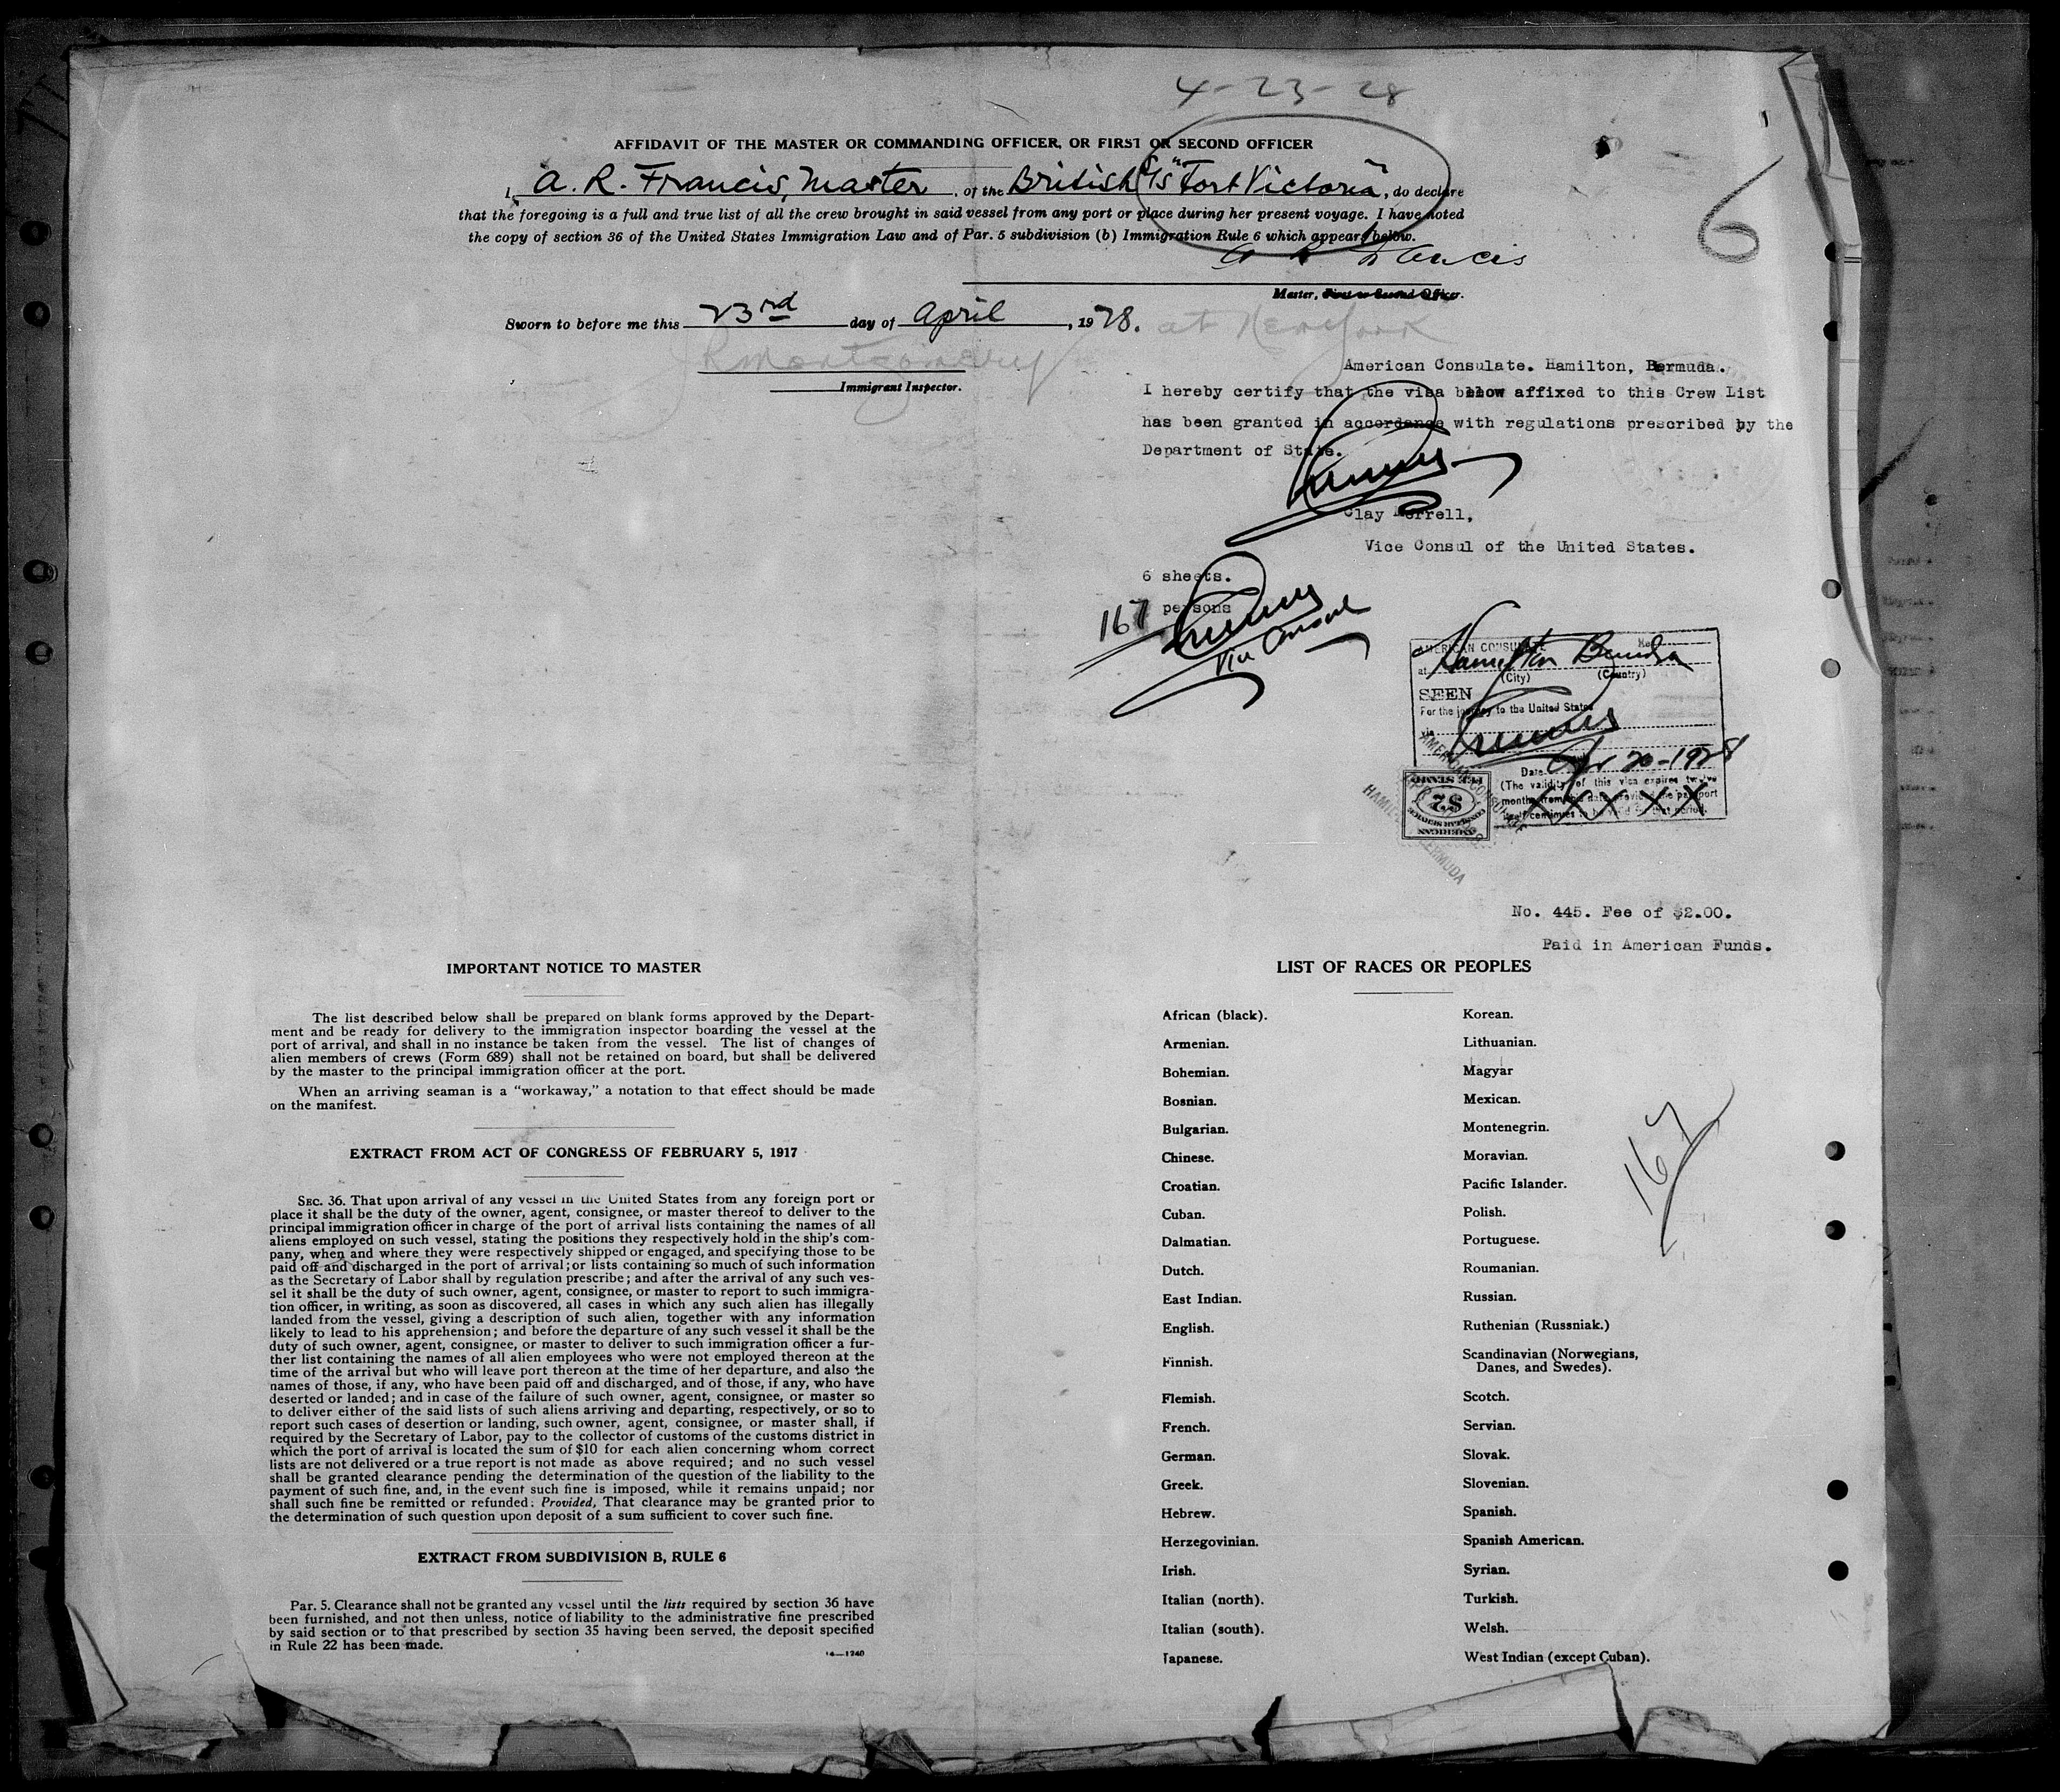 4-23-28
AFFIDAVIT OF THE MASTER OR COMMANDING OFFICER, OR FIRST OR SECOND OFFICER
I, A. R. Francis, Master, of the British S/S "Fort Victoria", do declare
that the foregoing is a full and true list of all the crew brought in said vessel from any port or place during her present voyage. I have noted
the copy of section 36 of the United States Immigration Law and of Par. 5 subdivision (b) Immigration Rule 6 which appears below.
6
A R Francis
Master, First or Second Officer.
Sworn to before me this 23rd day of April, 1928. at New York
R Montgomery
Immigrant Inspector.
American Consulate. Hamilton, Bermuda.
I hereby certify that the visa below affixed to this Crew List
has been granted in accordance with regulations prescribed by the
Department of State.
Clay Merrell,
Vice Consul of the United States.
6 sheets.
167 persons
Vice Consul
AMERICAN CONSULATE
at Hamilton Bermuda
(City) (Country)
SEEN
For the journey to the United States
Date Apr 20-1928
(The validity of this visa expires twelve
months from this date provided the passport
itself continues to be valid for that period.
XXXXX
FEE STAMP
$2
CONSULAR SERVICE
AMERICAN
AMERICAN CONSULATE
HAMILTON, BERMUDA
No. 445. Fee of $2.00.
Paid in American Funds.
IMPORTANT NOTICE TO MASTER
The list described below shall be prepared on blank forms approved by the Depart-
ment and be ready for delivery to the immigration inspector boarding the vessel at the
port of arrival, and shall in no instance be taken from the vessel. The list of changes of
alien members of crews (Form 689) shall not be retained on board, but shall be delivered
by the master to the principal immigration officer at the port.
When an arriving seaman is a "workaway," a notation to that effect should be made
on the manifest.
EXTRACT FROM ACT OF CONGRESS OF FEBRUARY 5, 1917
SEC. 36. That upon arrival of any vessel in the United States from any foreign port or
place it shall be the duty of the owner, agent, consignee, or master thereof to deliver to the
principal immigration officer in charge of the port of arrival lists containing the names of all
aliens employed on such vessel, stating the positions they respectively hold in the ship's com-
pany, when and where they were respectively shipped or engaged, and specifying those to be
paid off and discharged in the port of arrival; or lists containing so much of such information
as the Secretary of Labor shall by regulation prescribe; and after the arrival of any such ves-
sel it shall be the duty of such owner, agent, consignee, or master to report to such immigra-
tion officer, in writing, as soon as discovered, all cases in which any such alien has illegally
landed from the vessel, giving a description of such alien, together with any information
likely to lead to his apprehension; and before the departure of any such vessel it shall be the
duty of such owner, agent, consignee, or master to deliver to such immigration officer a fur-
ther list containing the names of all alien employees who were not employed thereon at the
time of the arrival but who will leave port thereon at the time of her departure, and also the
names of those, if any, who have been paid off and discharged, and of those, if any, who have
deserted or landed; and in case of the failure of such owner, agent, consignee, or master so
to deliver either of the said lists of such aliens arriving and departing, respectively, or so to
report such cases of desertion or landing, such owner, agent, consignee, or master shall, if
required by the Secretary of Labor, pay to the collector of customs of the customs district in
which the port of arrival is located the sum of $10 for each alien concerning whom correct
lists are not delivered or a true report is not made as above required; and no such vessel
shall be granted clearance pending the determination of the question of the liability to the
payment of such fine, and, in the event such fine is imposed, while it remains unpaid; nor
shall such fine be remitted or refunded: Provided, That clearance may be granted prior to
the determination of such question upon deposit of a sum sufficient to cover such fine.
EXTRACT FROM SUBDIVISION B, RULE 6
Par. 5. Clearance shall not be granted any vessel until the lists required by section 36 have
been furnished, and not then unless, notice of liability to the administrative fine prescribed
by said section or to that prescribed by section 35 having been served, the deposit specified
in Rule 22 has been made.
14—1240
LIST OF RACES OR PEOPLES
African (black).
Armenian.
Bohemian.
Bosnian.
Bulgarian.
Chinese.
Croatian.
Cuban.
Dalmatian.
Dutch.
East Indian.
English.
Finnish.
Flemish.
French.
German.
Greek.
Hebrew.
Herzegovinian.
Irish.
Italian (north).
Italian (south).
Japanese.
Korean.
Lithuanian.
Magyar
Mexican.
Montenegrin.
Moravian.
Pacific Islander.
Polish.
Portuguese.
Roumanian.
Russian.
Ruthenian (Russniak.)
Scandinavian (Norwegians,
Danes, and Swedes).
Scotch.
Servian.
Slovak.
Slovenian.
Spanish.
Spanish American.
Syrian.
Turkish.
Welsh.
West Indian (except Cuban).
167